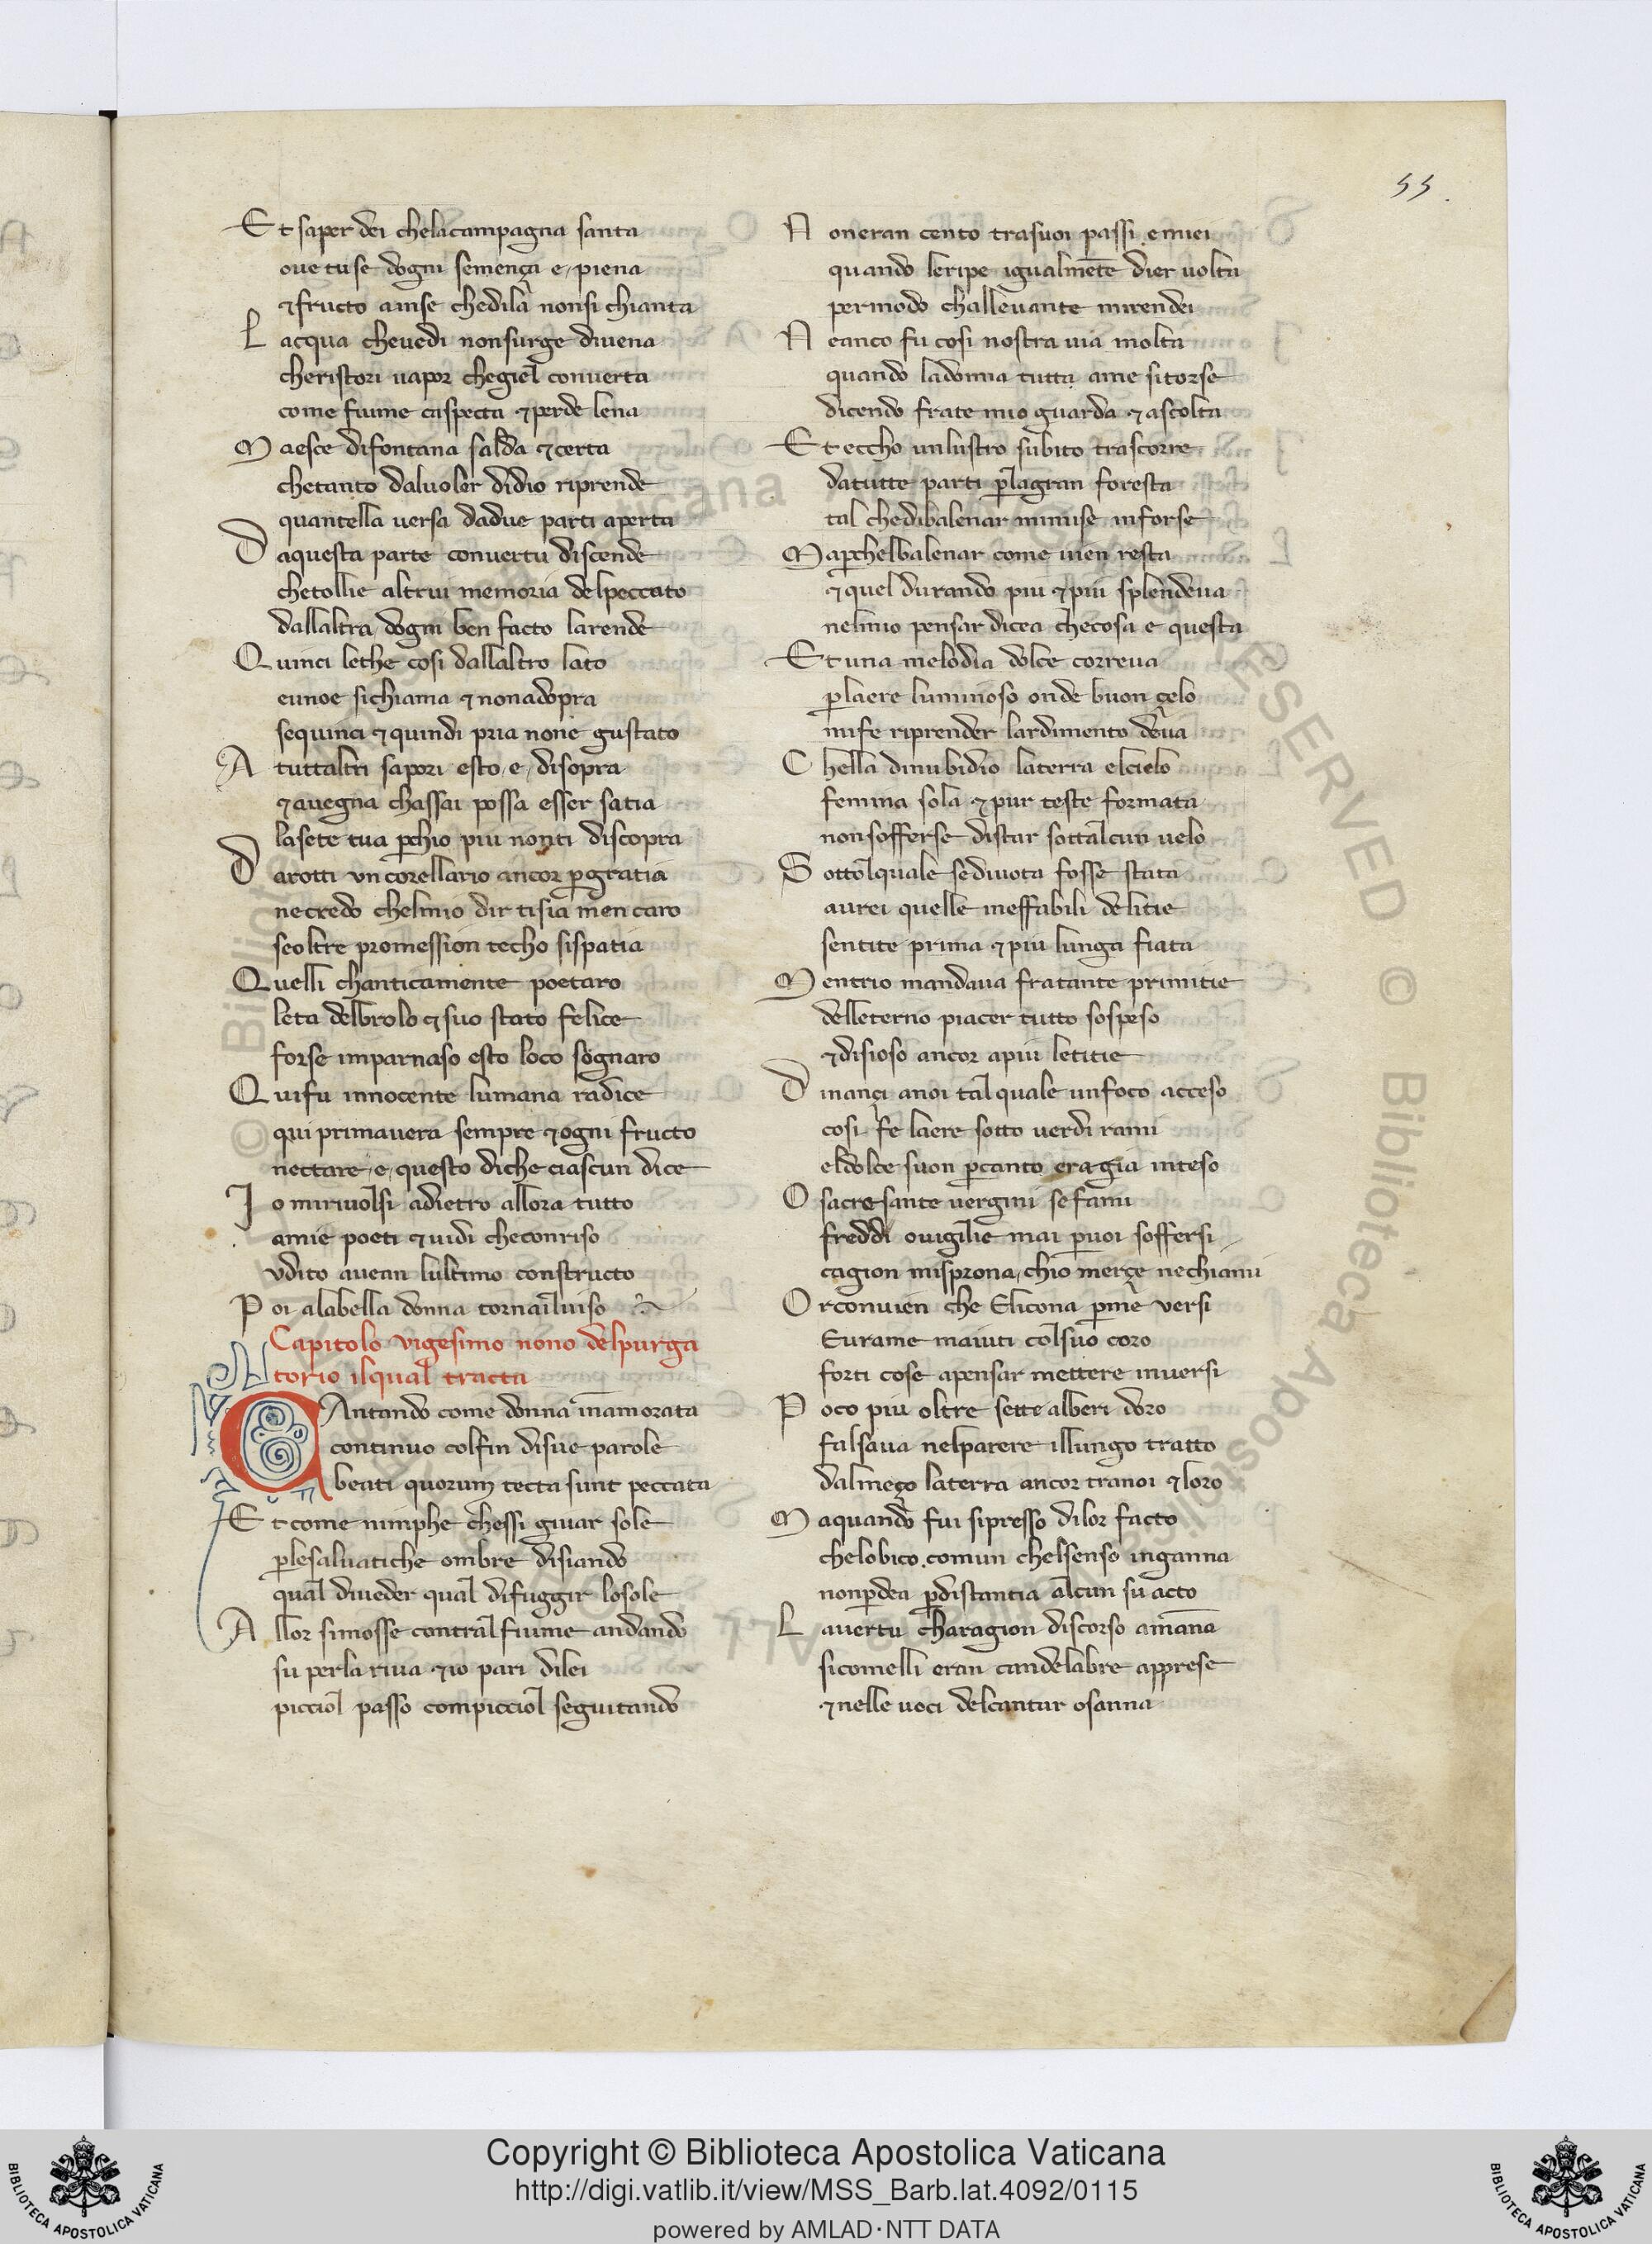 55.
Et saper dei chelacampagna santa
oue tuse dogni semença e piena
⁊ fructo inise chedila nonsi chianta
L acqua cheuedi nonsurge diuena
cheristori uapor chegiel conuerta
come fiume caspecta ⁊ perde lena
M aesce difontana salda ⁊ certa
chetanto daluoler didio riprende
quantella uersa dadue parti aperta
D aquesta parte conuertu discende
chetollie altrui memoria delpeccato
dallaltra dogni ben facto larende
Q uinci lethe cosi dallaltro lato
eunoe sichiama ⁊ nonadopra
sequinci ⁊ quindi pria none gustato
A tuttaltri sapori esto e disopra
⁊ auegna chassai possa esser satia
lasete tua ꝑchio piu nonti discopra
D arotti vn corellario ancor ꝑgratia
necredo chelmio dir tisia men caro
seoltre promession techo sispatia
Q uelli chanticamente poetaro
leta delbrolo ⁊ suo stato felice
forse imparnaso esto loco sognaro
Q uifu innocente lumana radice
qui primauera sempre ⁊ ogni fructo
nectare e questo diche ciascun dice
I o miriuolsi adietro allora tutto
amie poeti ⁊ uidi checonriso
vdito auean lultimo constructo
P oi alabella donna tornailuiso
Capitolo vigesimo nono delpurga
torio ilqual tracta
CAntando come donna inamorata
continuo colfin disue parole
beati quorum tecta sunt peccata
Et come nimphe chessi giuar sole
ꝑlesaluatiche ombre disiando
qual diueder qual difuggir losole
A llor simosse contralfiume andando
su perla riua ⁊ io pari dilei
picciol passo compicciol seguitando
N oneran cento trasuoi passi emiei
quando leripe igualmēte dier uolta
permodo challeuante mirendei
N eanco fu cosi nostra uia molta
quando ladonna tutta ame sitorse
dicendo frate mio guarda ⁊ ascolta
Et eccho unlustro subito trascorre
datutte parti ꝑlagran foresta
tal chedibalenar mimise inforse
M aꝑchelbalenar come uien resta
⁊ quel durando piu ⁊ piu splendeua
nelmio pensar dicea checosa e questa
Et una melodia dolce correua
ꝑlaere luminoso onde buon çelo
mife riprender lardimento deua
C hella dinubidio laterra elcielo
femina sola ⁊ pur teste formata
nonsofferse distar sottalcun uelo
S ottolquale sediuota fosse stata
aurei quelle ineffabili delitie
sentite prima ⁊ piu lunga fiata
M entrio mandaua fratante primitie
delleterno piacer tutto sospeso
⁊ disioso ancor apiu letitie
D inançi anoi tal quale unfoco acceso
cosi fe laere sotto uerdi rami
eldolce suon ꝑcanto era gia inteso
O sacresante uergini se fami
freddi ouigilie mai ꝑuoi soffersi
cagion misprona chio merçe nechiami
O rconuien che Elicona ꝑme versi
Eurame maiuti colsuo coro
forti cose apensar mettere inuersi
P oco piu oltre sette alberi doro
falsaua nelparere illungo tratto
dalmeço laterra ancor tranoi ⁊ loro
M aquando fui sipresso dilor facto
chelobico comun chelsenso inganna
nonꝑdea ꝑdistantia alcun su acto
L auertu charagion discorso amāna
sicomelli eran candelabre apprese
⁊ nelle uoci delcantar osanna
Copyright © Biblioteca Apostolica Vaticana
http://digi.vatlib.it/view/MSS_Barb.lat.4092/0115
powered by AMLAD·NTT DATA
BIBLIOTECA APOSTOLICA VATICANA
BIBLIOTECA APOSTOLICA VATICANA